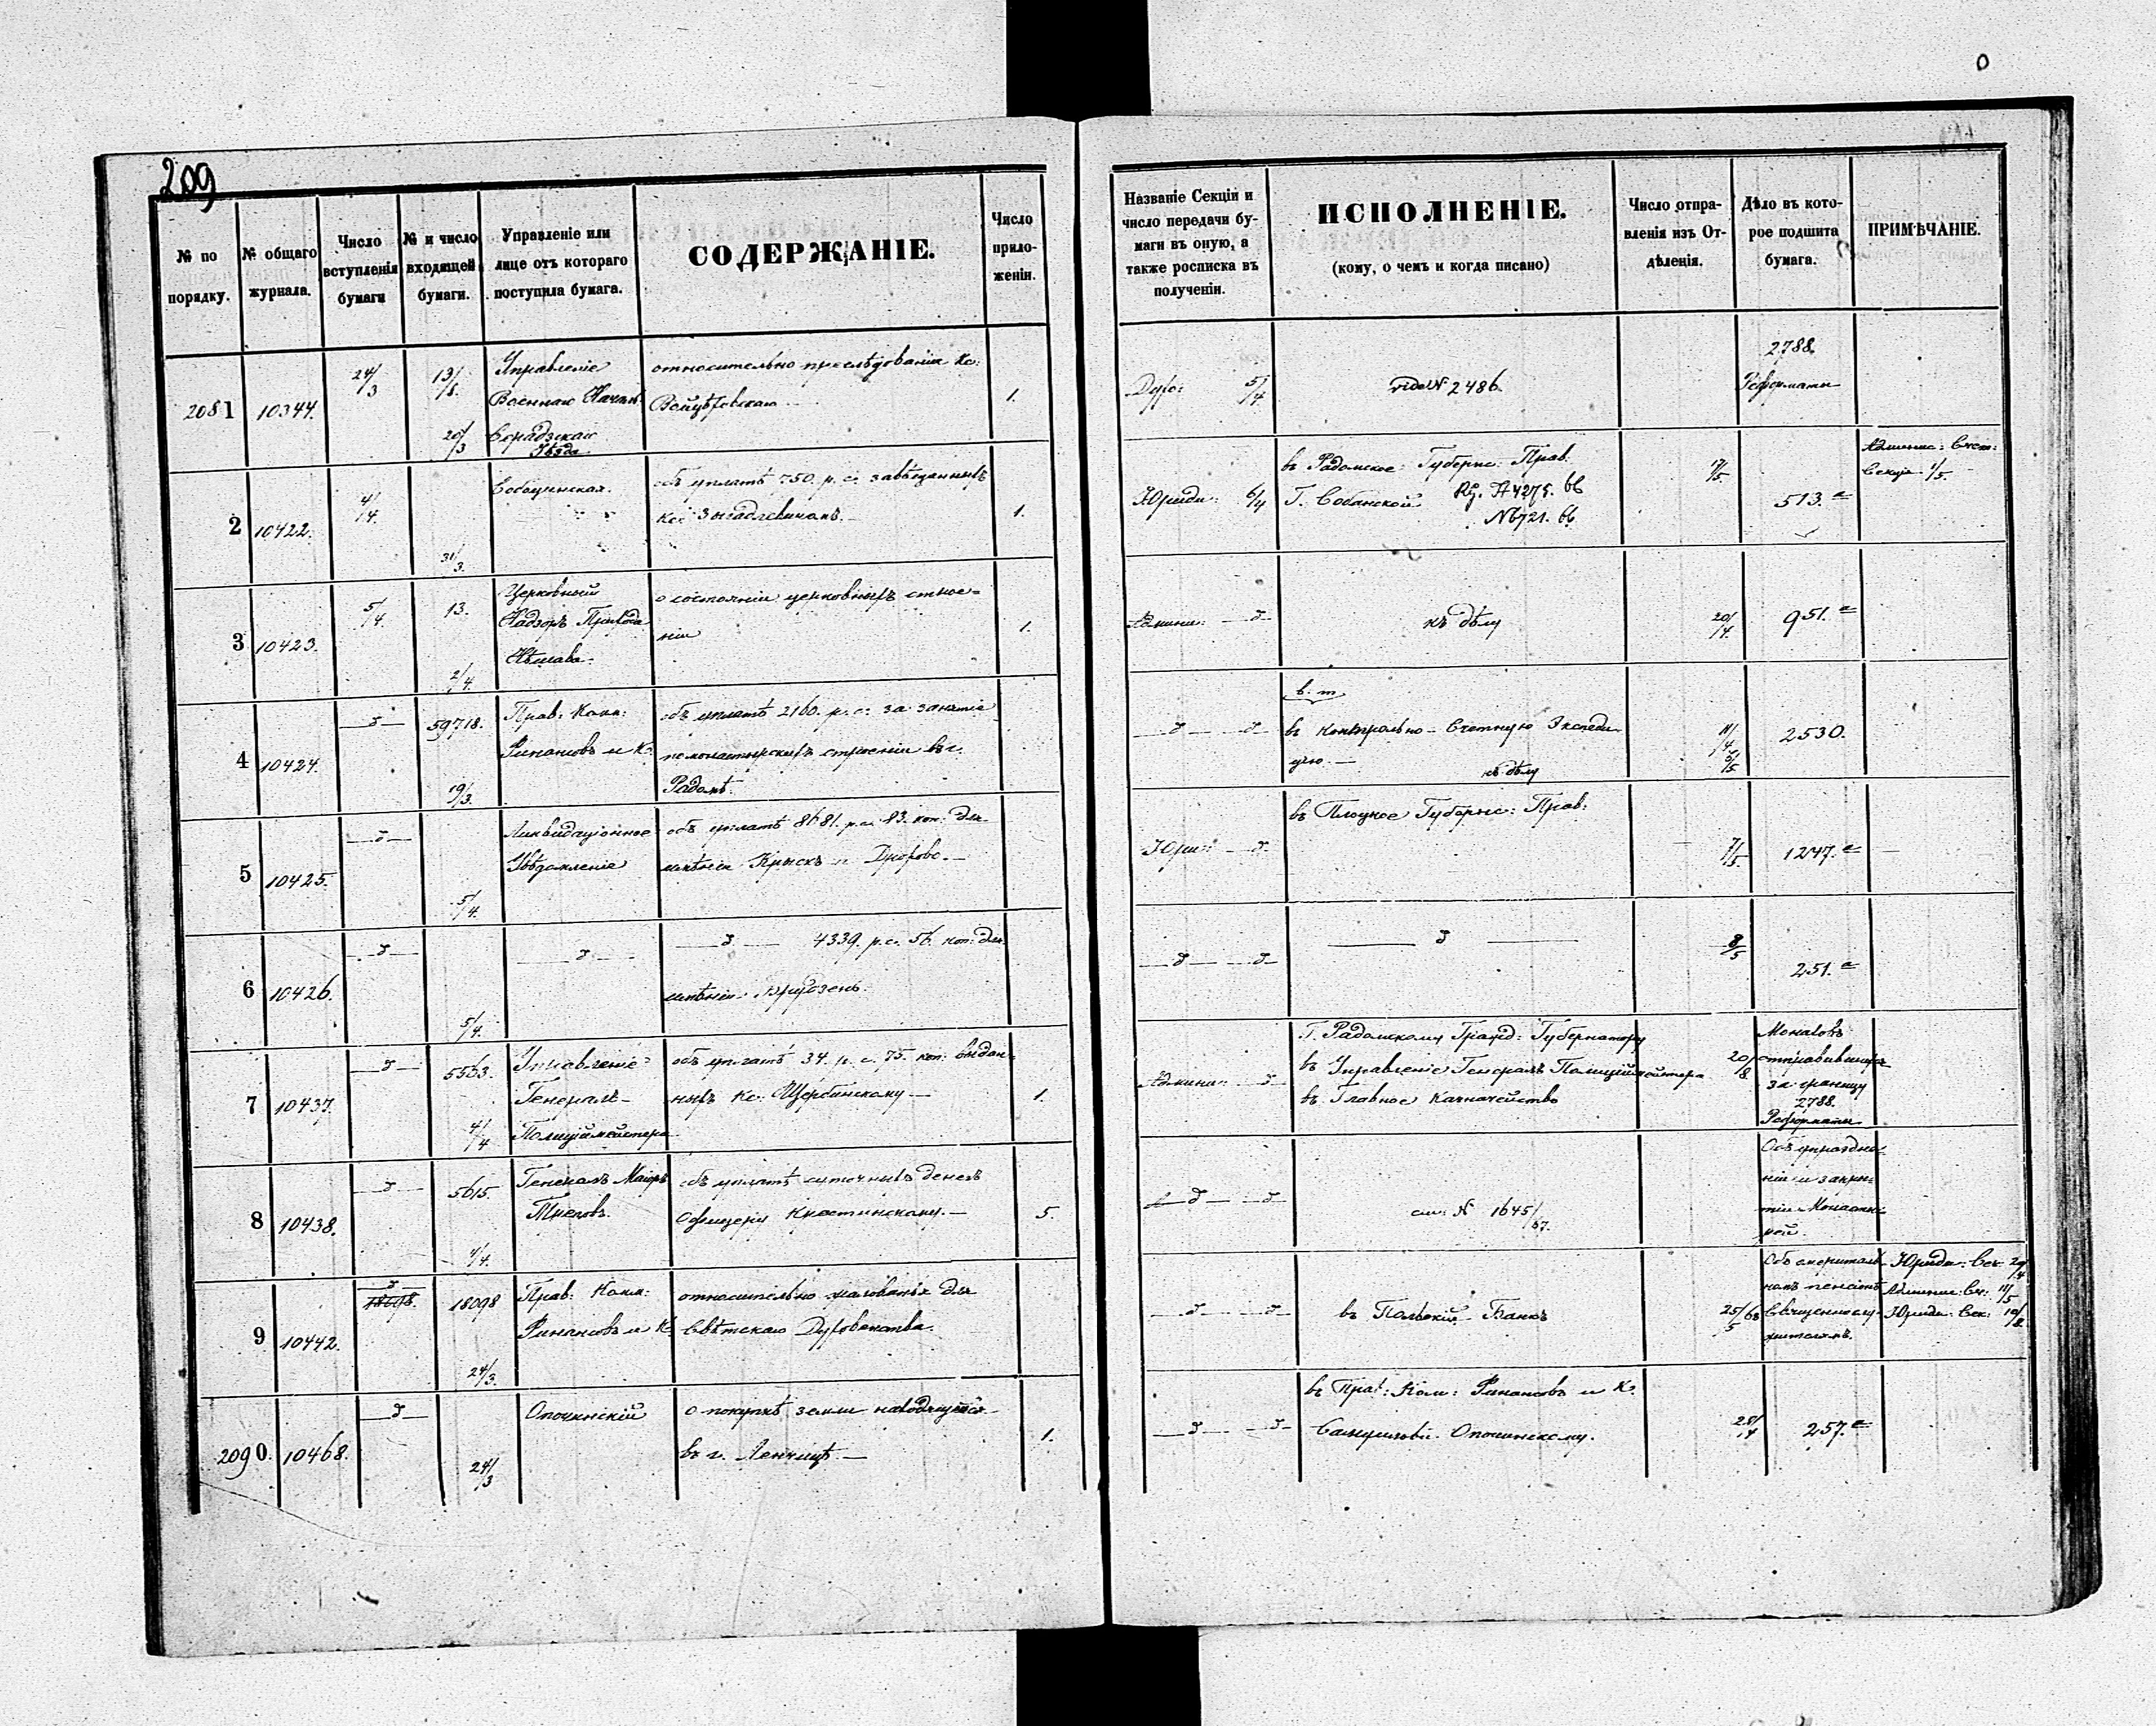 209
№ по порядку.
№ общаго журнала.
Число вступленія бумаги
№ и число входящей бумаги.
Управленіе или лице отъ котораго поступила бумага.
СОДЕРЖАНІЕ.
Число приложеніи.
Названіе Секціи и число передачи бумаги въ оную, а также росписка въ полученіи.
ИСПОЛНЕНІЕ.
(кому, о чемъ и когда писано)
Число отправленія изъ Отдѣленія.
Дѣло въ которое подшита бумага.
ПРИМѢЧАНІЕ.
2081 10344. 24/3 13/8. 20/3
Управленіе
Военнаго Начал:
Серадзкаго
Уѣзда
относительно преслѣдованія Кс:
1.
Духо: 5/4
vide N 2486.
2788.
Реформаты
2 10422. 4/4. 31/3.
объ уплатѣ 750. р. с. завѣщанныхъ
1.
Юриди: 6/4
въ Радомское Губернс: Прав:
Г. Собанской
17/5
513.
Админис: Счет:
Секція 1/5.
3 10423. 5/4. 13. 2/4.
Церковный
Надзоръ Прихода
о состояніи церковныхъ строе=
ній
1.
Админи: d
къ дѣлу
20/4.
951.
4 10424. d 59718. 19/3.
Прав: Комм:
Финансовъ и К:
объ уплатѣ 2160. р. с. за занятіе
помонастырскихъ строеніи въ г.
Радомѣ.
d d
в. т
въ Контрольно-Счетную Экспеди
цію.
къ дѣлу
11/4
2530.
5 10425. d 5/4.
Ликвидаціонное
Увѣдомленіе
объ уплатѣ 8681. р. с. 83. коп. для
имѣнія Крыскъ и
Юри: d
въ Плоцкое Губернс: Прав:
7/5
1247.
6 10426. d 5/4.
d
d 4339. р. с. 56. коп: для
имѣнія
d d
d
8/5
251.
7 10437. d 5563. 4/4
Управленіе
Генералъ-
Полиціймейстера
объ уплатѣ 34. р. с. 75. коп: выдан=
ныхъ Кс: Щербинскому
1.
Админи: d
Г. Радомскому Гражд: Губернатору
въ Управленіе Генералъ Полиціймейстера
въ Главное Казначейство
20/8.
Монаховъ
отправившихся
за границу
2788.
Реформаты
8 10438. d 5615. 4/4.
Генералъ Маіоръ
Треповъ
объ уплатѣ суточныхъ денегъ
Офицеру
5.
d d
см: N 1645/67.
Объ упраздне=
ніи и закры=
тіи Монасты=
рей.
9 10442. d 18098. 18098 24/3.
Прав: Комм:
Финансовъ и К
относительно жалованья для
Свѣтскаго Духовенства.
d d
въ Польскій Банкъ
25/5 68
Объ эмериталь
номъ пенсіонѣ
Священнослу=
жителямъ.
Юриди: Сек: 29/4
Админис: Сек: 11/5
Юриди: Сек: 19/8.
2090. 10468. d 24/3
Опочинскій
о покупкѣ земли находящейся
въ г. Ленчицѣ.
1.
d d
въ Прав: Ком: Финансовъ и К:
Опочинскому.
257.